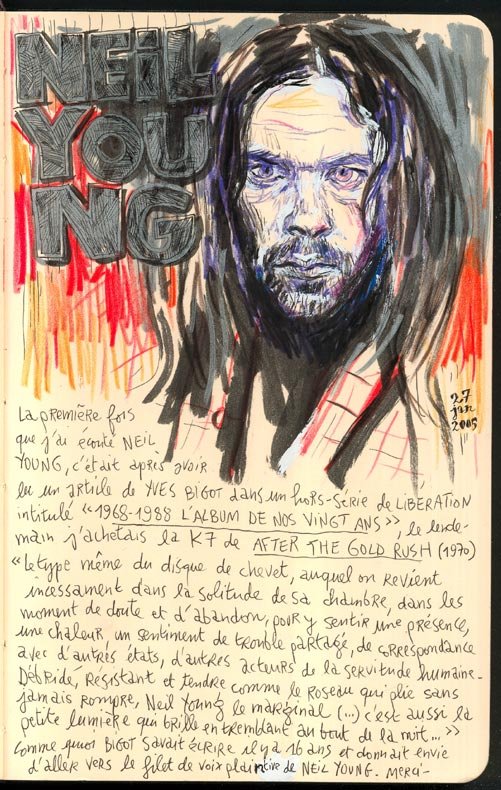 NEIL
YOU
NG
27
jan
2005
La première fois
que j'ai écouté NEIL
YOUNG, c'était après avoir
lu un article de YVES BIGOT dans un hors-série de LIBERATION
intitulé « 1968-1988 L'ALBUM DE NOS VINGT ANS », le lende-
main j'achetais la K7 de AFTER THE GOLD RUSH (1970)
« Le type même du disque de chevet, auquel on revient
incessament dans la solitude de sa chambre, dans les
moment de doute et d'abandon, pour y sentir une présence,
une chaleur, un sentiment de trouble partagé, de correspondance
avec d'autres états, d'autres acteurs de la servitude humaine.
Débridé, Résistant et tendre comme le roseau qui plie sans
jamais rompre, Neil Young le marginal (...) c'est aussi la
petite lumière qui brille en tremblant au bout de la nuit... »
Comme quoi BIGOT savait écrire il y a 16 ans et donnait envie
d'aller vers le filet de voix plaintive de NEIL YOUNG. Merci-